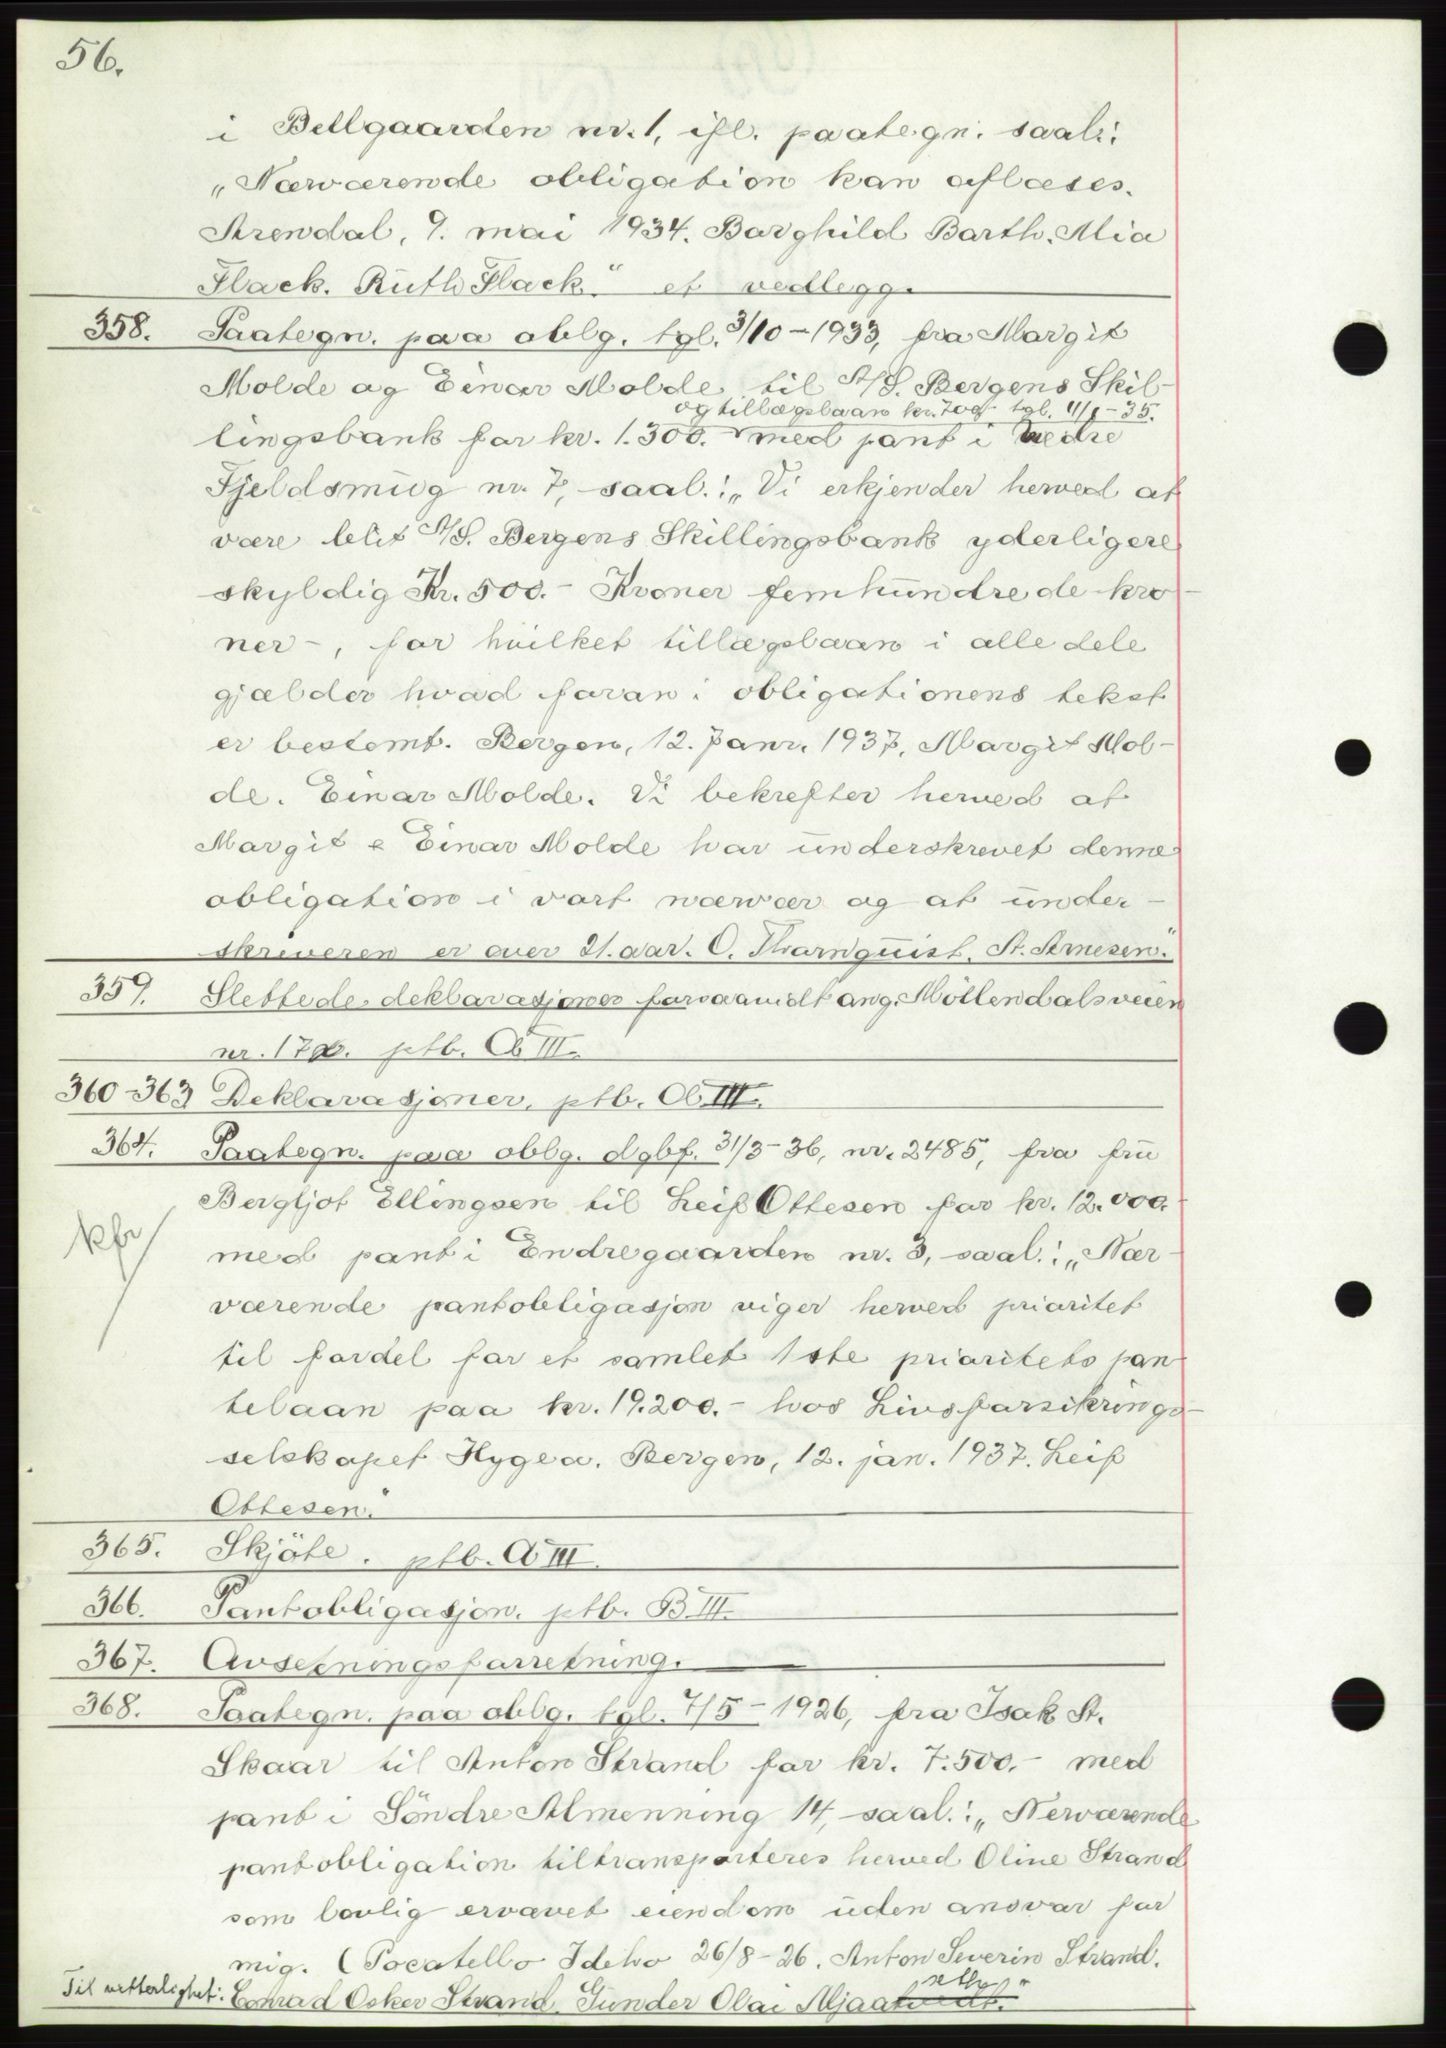 56.
i Bellgaarden nr. 1, ifl. paategn. saal.:
„Nærværende obligation kan aflæses.
Arendal, 9. mai 1934. Borghild Barth. Mia
Flack. Ruth Flack." et vedlegg.
358. Paategn. paa oblg. tgl. 3/10-1933, fra Margit
Molde og Einar Molde til A/S. Bergens Skil-
og tillægslaan kr. 700 tgl. 11/1-35.
lingsbank for kr. 1.300.- med pant i nedre
Fjeldsmug nr. 7, saal.: „Vi erkjender herved at
være blit A/S. Bergens Skillingsbank yderligere
skyldig Kr. 500.- Kroner femhundrede kro-
ner -, for hvilket tillægslaan i alle dele
gjælder hvad foran i obligationens tekst
er bestemt. Bergen, 12. Janr. 1937. Margit Mol-
de. Einar Molde. Vi bekrefter herved at
Margit & Einar Molde har underskrevet denne
obligation i vort nærvær og at under-
skriveren er over 21. aar. C. Tharnquist. St. Arnesen."
359. Slettede deklarasjoner forsaavidt ang. Möllendalsveien
nr. 17 ptb. Cb III.
360-363 Deklarasjoner, ptb. Cb III.
364. Paategn. paa oblg. dgbf. 31/3-36, nr. 2485, fra fru
Bergljot Ellingsen til Leif Ottesen for kr. 12.000.
kfr
med pant i Endregaarden nr. 3, saal.: „Nær-
værende pantobligasjon viger herved prioritet
til fordel for et samlet 1ste prioritets pan-
telaan paa kr. 19.200.- hos Livsforsikrings-
selskapet Hygea. Bergen, 12. jan. 1937. Leif
Ottesen."
365. Skjöte. ptb. A III.
366. Pantobligasjon. ptb. B III.
367. Avsetningsforretning.
368. Paategn. paa oblg. tgl. 7/5-1926, fra Isak St.
Skaar til Anton Strand for kr. 7.500.- med
pant i Söndre Almenning 14, saal.: „Nerværende
pantobligation tiltransporteres herved Oline Strand
som lovlig ervævet eiendom uden ansvar for
mig. (Pocatello Ideho 26/8-26. Anton Severin Strand.
Til vitterlighet: Conrad Osker Strand. Gunder Olai Mjaat